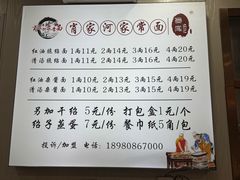 肖家河家常面
红油燃面 1两11元 2两14元 3两16元 4两20元
清汤燃面 1两11元 2两14元 3两16元 4两20元
红油杂酱面 1两10元 2两13元 3两15元 4两19元
清汤杂酱面 1两10元 2两13元 3两15元 4两19元
另加干绍 5元/份 打包盒1元/个
绍子蒸蛋 7元/份 餐巾纸5角/包
投诉/加盟 电话: 18980867000